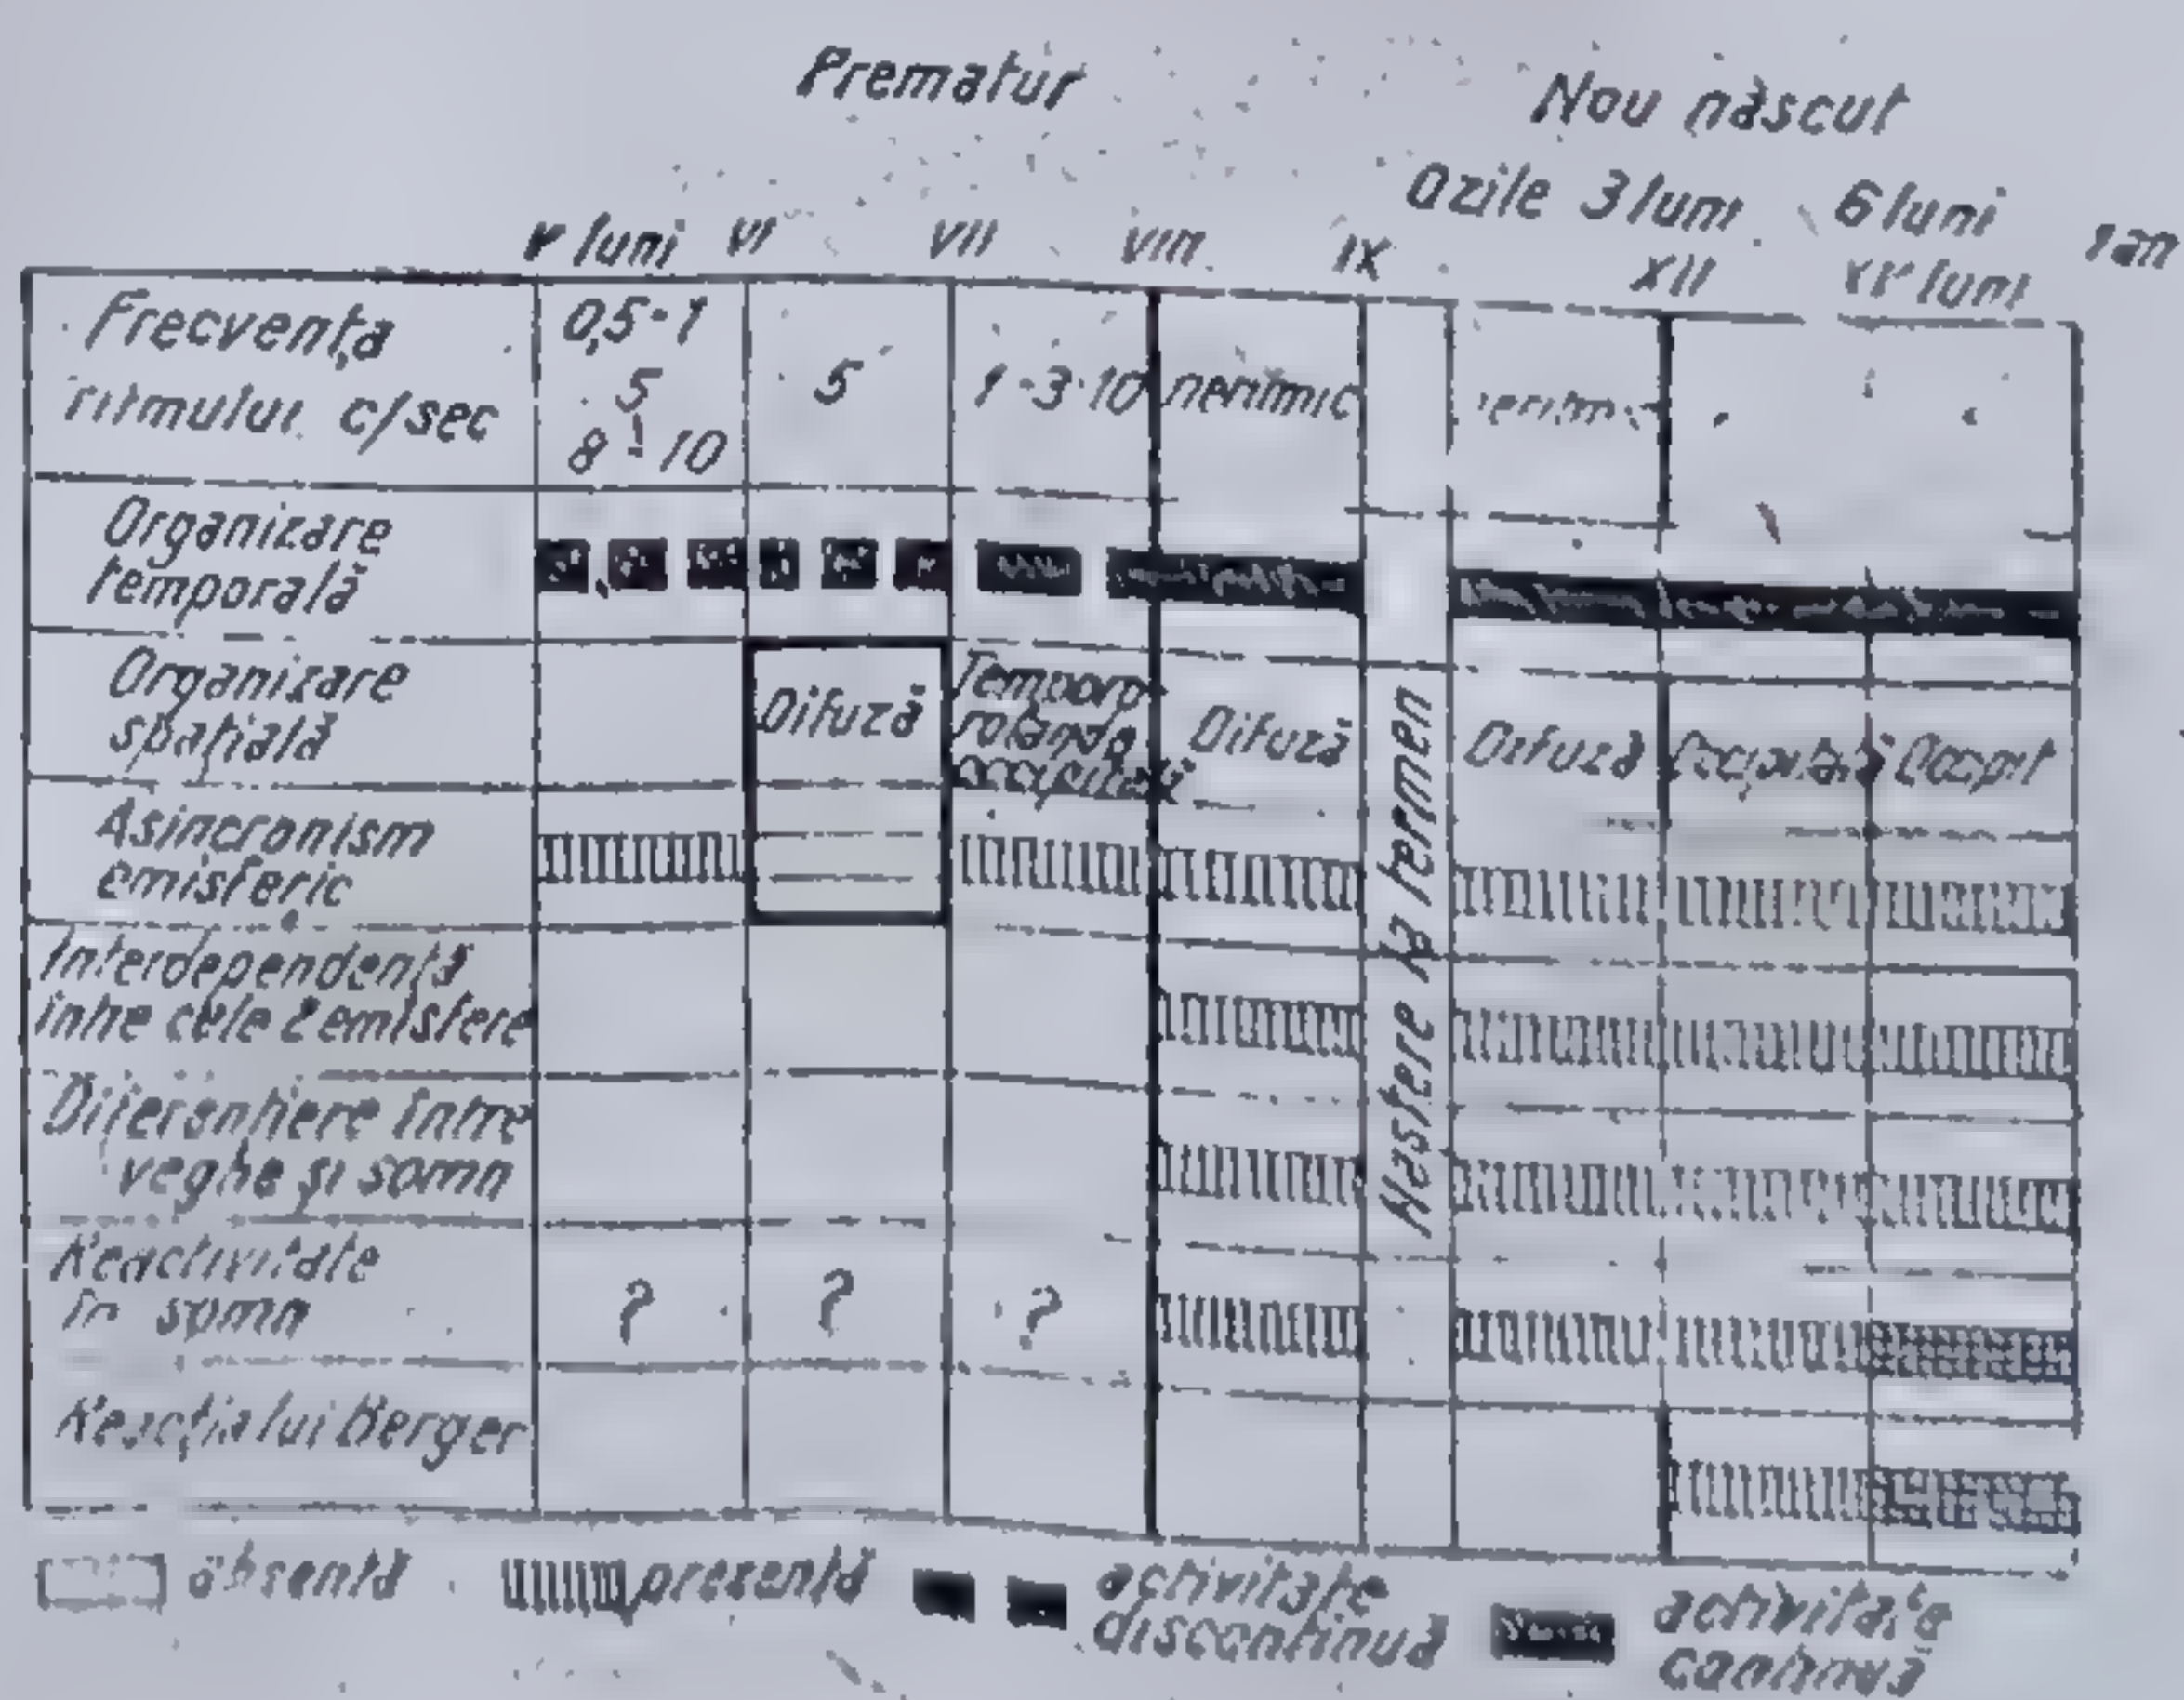 Prematur
Nou născut
0 zile 3 luni 6 luni 1 an
V luni VI VII VIII IX XII XV luni
Frecvența
ritmului c/sec
0,5-1
5
8-10
5
1-3-10
neritmic
Organizare
temporală
Organizare
spațială
Difuză
Temporo
rolando
occipitală
Difuză
Difuză
Occipitală
Occipit
Asincronism
emisferic
Interdependență
între cele 2 emisfere
Diferențiere între
veghe și somn
Reactivitate
în somn
?
?
?
Reacția lui Berger
Naștere la termen
absentă
prezentă
activitate
discontinuă
activitate
continuă